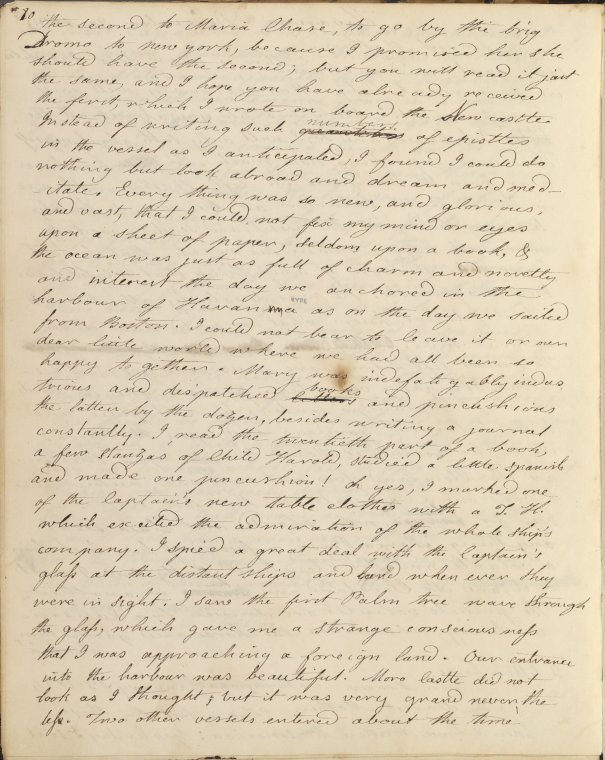 10
the second to Maria Chase, to go by the brig
Dromo to new york, because I promised her she
should have the second; but you will read it just
the same, and I hope you have already received
the first, which I wrote on board the New castle.
Instead of writing such number of epistles
in the vessel as I anticipated, I found I could do
nothing but look abroad and dream and med-
itate. Every thing was so new, and glorious,
and vast, that I could not fix my mind or eyes
upon a sheet of paper, seldom upon a book, &
the ocean was just as full of charm and novelty
and interest the day we anchored in the
harbour of Havanna as on the day we sailed
from Boston. I could not bear to leave it or our
dear little world where we had all been so
happy to gether. Mary was indefatigably indus
trious and dispatched letters books and pincushions
the latter by the dozen, besides writing a journal
constantly. I read the twentieth part of a book,
a few stanzas of Child Harold, studied a little Spanish
and made one pincushion! Oh yes, I marked one
of the Captain's new table clothes with a T. H.
which excited the admiration of the whole ship's
company. I spied a great deal with the Captain's
glass at the distant ships and land when ever they
were in sight. I saw the first Palm tree wave through
the glass, which gave me a strange consciousness
that I was approaching a foreign land. Our entrance
into the harbour was beautiful. Moro castle did not
look as I thought; but it was very grand never the
less. Two other vessels entered about the time